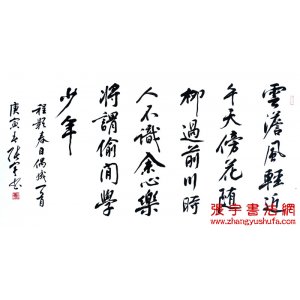 雲澹風輕近
午天傍花隨
柳過前川時
人不識余心樂
將謂偷閒學
少年
程顥春日偶成一首
庚寅春張宇書
張宇書法網
www.zhangyushufa.com